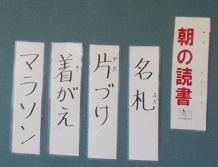 朝の読書
名札
片づけ
着がえ
マラソン